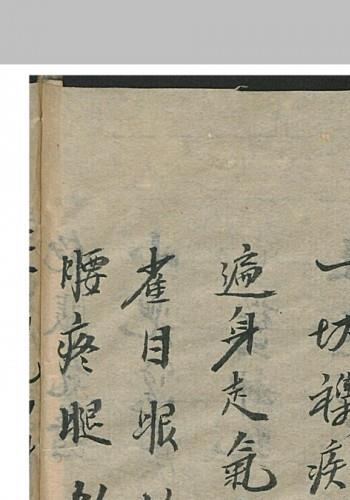 一切襍疾
遍身走氣
雀目眼
腰疼腿